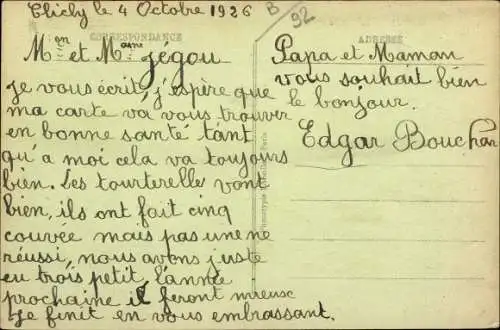 Clichy le 4 Octobre 1926
B
92
CORRESPONDANCE
ADRESSE
Mon et Mame Jégou
je vous écrit, j'espère que
ma carte va vous trouver
en bonne santé tant
qu'a moi cela va toujours
bien. Les tourterelle vont
bien, ils ont fait cinq
couvée mais pas une ne
réussi, nous avons juste
eu trois petit, l'année
prochaine il feront mieuse
Je finit en vous embrassant.
Papa et Maman
vous souhait bien
le bonjour.
Edgar Bouchar